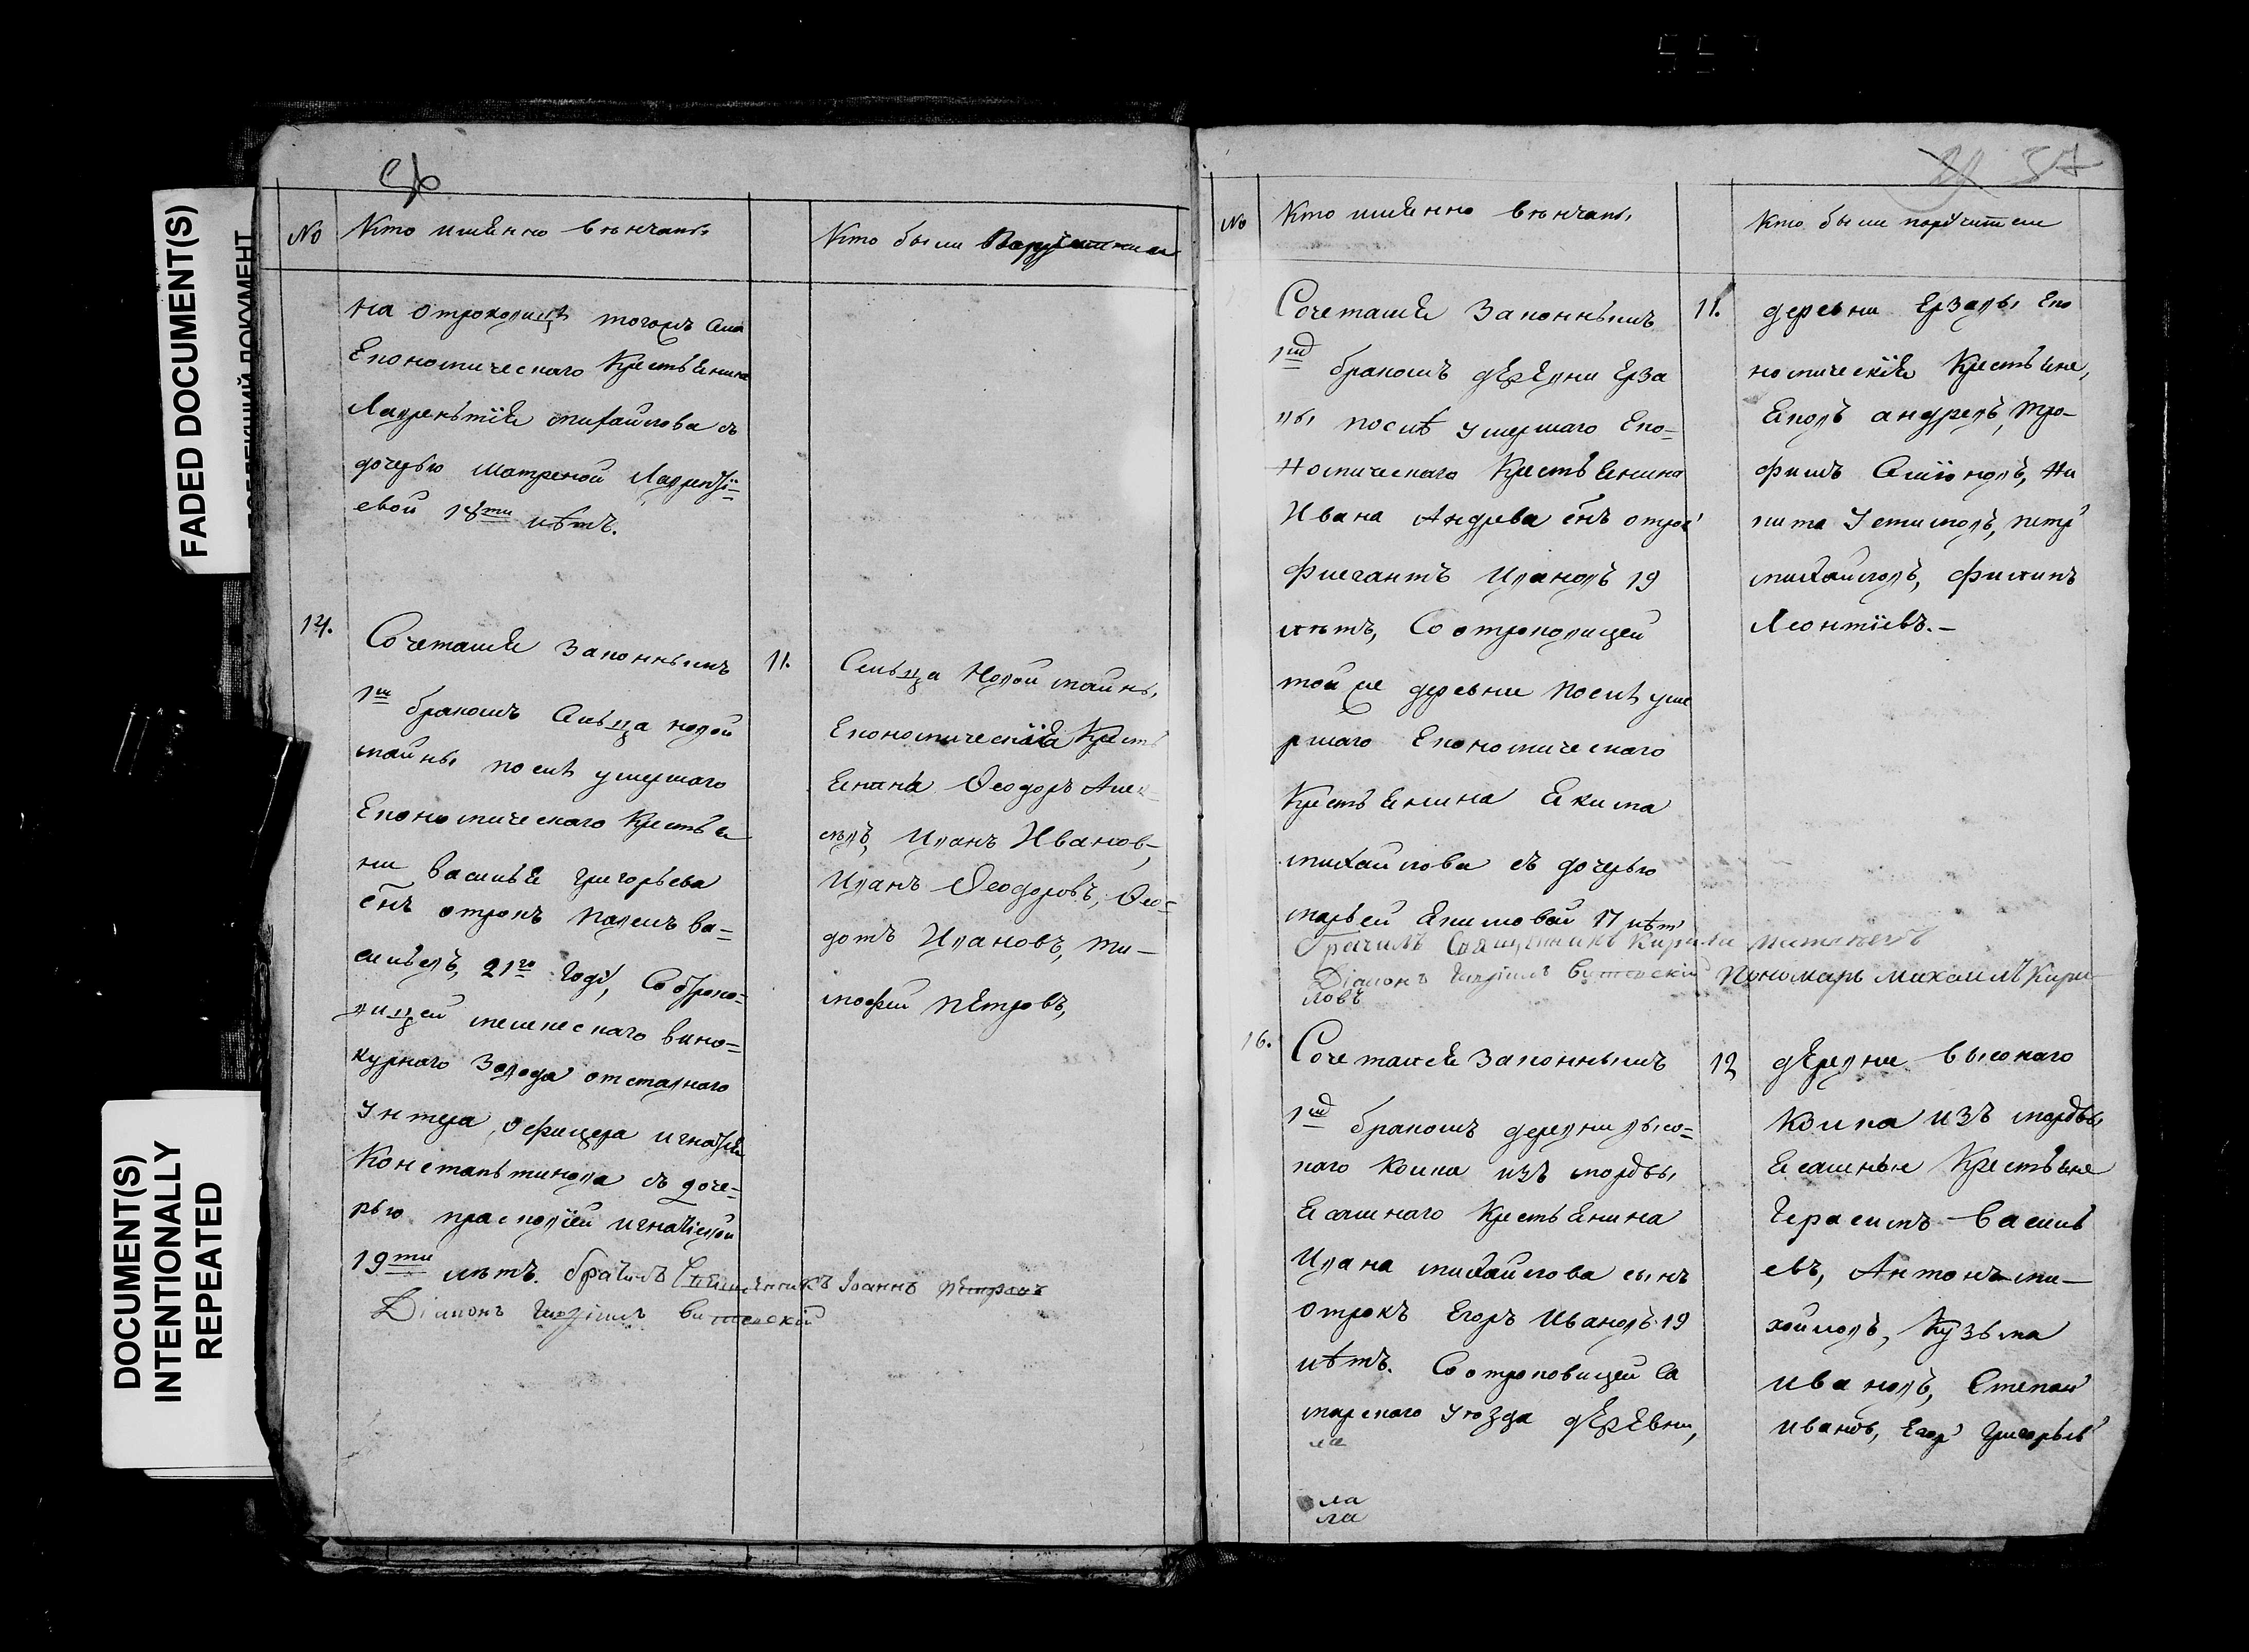 557
FADED DOCUMENT(S)
DOCUMENT(S)
INTENTIONALLY
REPEATED
№ Кто имѣнно вѣнчаны Кто были
на отроковицѣ тогожъ села
Економическаго Крестьѣнина
Лаврентїя михайлова съ
дочерью матреной Лаврентї=
евой 18ти лѣтъ.
14.
Сочетался Законнымъ
1м бракомъ Сельца новой
майны после умершаго
Економическаго Крестья
ни василья григорьева
снъ отрокъ павелъ ва=
сильевъ, 21го году, Со отроко=
вицей мелекескаго вино=
курнаго Завода отставнаго
Унтера офицера игнатья
Констаньтинова съ доче=
рью прасковїей игнатьевой
19ти лѣтъ. бра҃чилъ Священникъ Iоаннъ Петровъ
Дїаконъ
11.
Сельца Новой майны,
Економическїя Кресть
Ѳеодоръ Алек
сѣевъ, Иванъ Ивановъ,
Иванъ Ѳеодоровъ, Ѳео=
дотъ Ивановъ, ти—
мофей пЕтровъ,
№ Кто имѣнно вѣнчаны Кто были поручители
37
Сочетался Законнымъ
1м бракомъ дЕрЕвни Ерза
вы послѣ умершаго Еко=
номическаго Крестьянина
Ивана Андрева снъ отрок
Фисгантъ Ивановъ 19
лѣтъ, Со отроковицей
той же деревни послѣ уме
ршаго Економическаго
Крестьянина Екима
михайлова съ дочерью
марьей Екимовой 17 лѣт
Священникъ Кирила
Дїаконъ Пономарь Михаилъ Кири
ловъ
11.
деревни Ерзавы Еко
номическїя Крестьяне,
Андревъ, тро=
фимъ Семїоновъ, Ни
кита Устимовъ, петр
михайловъ, филипъ
Леонтїевъ.—
16.
Сочетался Законнымъ
1м бракомъ деревни высо=
каго Колка изъ мордвы
Есашнаго Крестьянина
Ивана михайлова сынъ
отрокъ Егоръ Ивановъ 19
лѣтъ. Со отроковицей са
марскаго уѣзда дЕрЕвни,
ла
ла
ла
12
дЕревни высокаго
Колка изъ мордвы
Есашные Крестьяне
герасимъ василь
евъ, Антонъ ми—
хойловъ, Кузьма
ивановъ, Степан
ивановъ, Егор григорьев